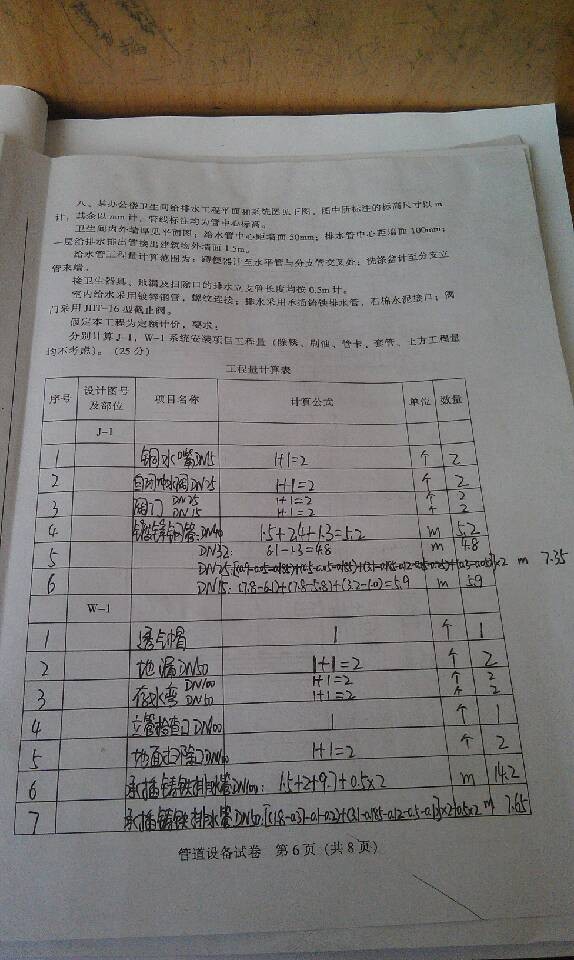 八、某办公楼卫生间给排水工程平面和系统图见下图，图中所标注的标高尺寸以 m
计，其余以 mm 计，管线标注均为管中心标高。
卫生间内外墙厚见平面图；给水管中心距墙面 50mm；排水管中心距墙面 100mm；
一层给排水排出管接出建筑物外墙面 1.5m。
给水管工程量计算范围为：蹲便器计至水平管与分支管交叉处；洗涤盆计至分支立
管末端。
接卫生器具、地漏及扫除口的排水立支管长度均按 0.5m 计。
室内给水采用镀锌钢管，螺纹连接；排水采用承插铸铁排水管，石棉水泥接口；阀
门采用 J11T-16 型截止阀。
假定本工程为定额计价，要求：
分别计算 J-1，W-1 系统安装项目工程量（除锈、刷油、管卡、套管、土方工程量
均不考虑）。（25 分）
工程量计算表
序号 设计图号及部位 项目名称 计算公式 单位 数量
J-1
1 铜水嘴DN15 1+1=2 个 2
2 自闭冲水阀DN25 1+1=2 个 2
3 阀门 DN25 1+1=2 个 2
DN15 1+1=2 个 2
4 镀锌钢管:DN40 1.5+2.4+1.3=5.2 m 5.2
5 DN32: 6.1-1.3=4.8 m 4.8
DN25: ×2 m 7.35
6 DN15: (7.8-6.1)+(7.8-5.8)+(3.2-1.0)=5.9 m 5.9
W-1
1 透气帽 1 个 1
2 地漏DN50 1+1=2 个 2
3 存水弯 DN100 1+1=2 个 2
DN50 1+1=2 个 2
4 立管检查口DN100 1 个 1
5 地面扫除口DN100 1+1=2 个 2
6 承插铸铁排水管DN100: 1.5+2+9.7+0.5×2 m 14.2
7 承插铸铁排水管DN50:[(1.8-0.3)-0.1-0.2)+(3.1-0.185-0.12-0.5-0.1)]×2+0.5×2 m 7.65
管道设备试卷 第 6 页（共 8 页）